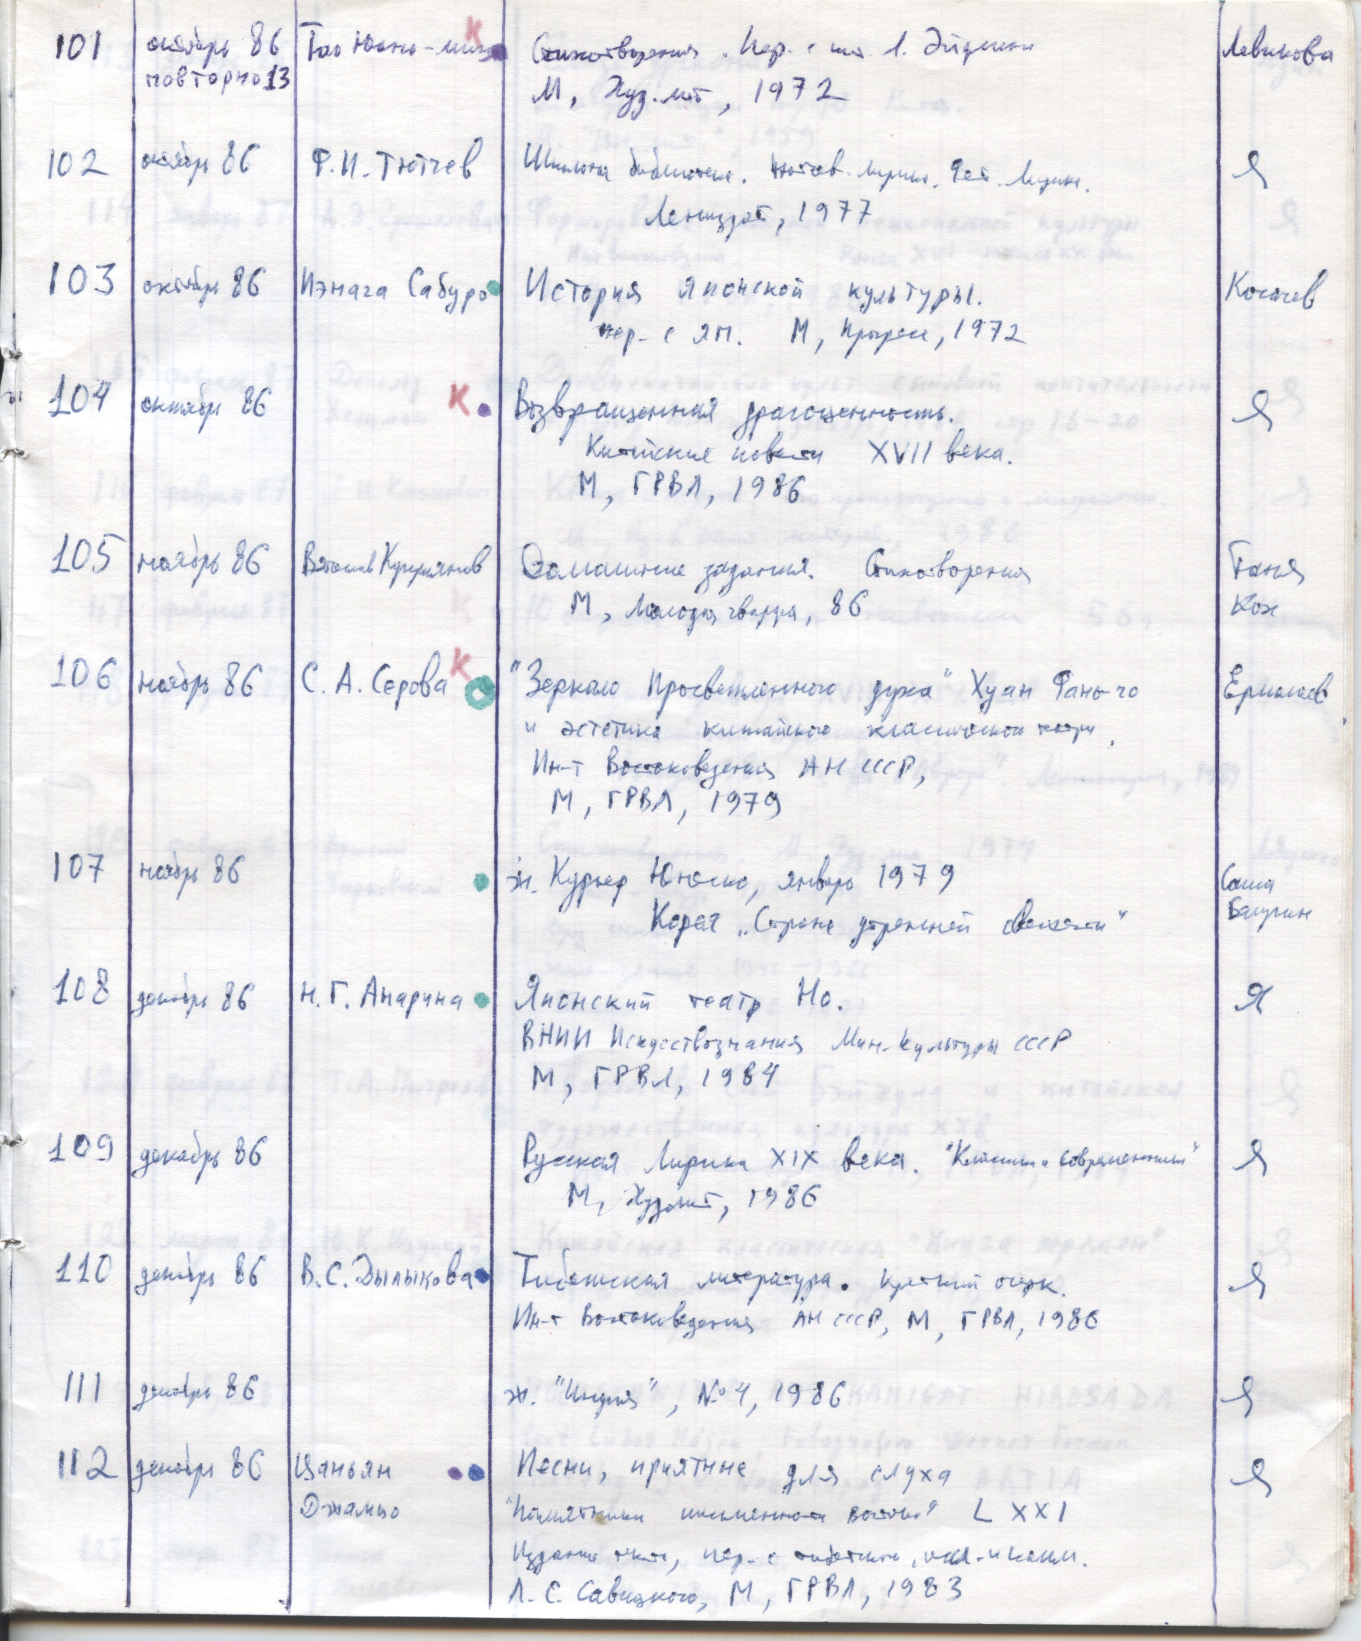 101 октябрь 86 Тао Юань-мин К Стихотворения. Пер. с кит. Л. Эйдлина Левикова
повторно 13 М, Худ. лит, 1972
102 октябрь 86 Ф.И. Тютчев Школьная библиотека. Тютчев. Лирика. Дет. Лицам. Я
Лениздат, 1977
103 октябрь 86 Иэнага Сабуро История японской культуры. Косачев
пер. с яп. М, Прогресс, 1972
104 октябрь 86 К Возвращенная драгоценность. Я
Китайские повести XVII века.
М, ГРВЛ, 1986
105 ноябрь 86 Вячеслав Куприянов Домашние задания. Стихотворения Таня
М, Молодая гвардия, 86 Кох
106 ноябрь 86 С. А. Серова К "Зеркало Просветленного духа" Хуан Фань-чо Ермолаев
и эстетика китайского классического театра.
Ин-т Востоковедения АН СССР,
М, ГРВЛ, 1979
107 ноябрь 86 ж. Курьер Юнеско, январь 1979 Саша
Корея „Страна утренней свежести" Бачурин
108 декабрь 86 Н. Г. Анарина Японский театр Но. Я
ВНИИ Искусствознания Мин. культуры СССР
М, ГРВЛ, 1984
109 декабрь 86 Русская Лирика XIX века. "Классики и современники" Я
М, Худ лит, 1986
110 декабрь 86 В.С. Дылыкова Тибетская литература. Краткий очерк. Я
Ин-т Востоковедения АН СССР, М, ГРВЛ, 1986
111 декабрь 86 ж. "Индия", № 4, 1986 Я
112 декабрь 86 Цаньян Песни, приятные для слуха Я
Джамцо "Памятники письменности востока" LXXI
Издание текста, пер. с тибетского, исл. и комм.
Л. С. Савицкого, М, ГРВЛ, 1983